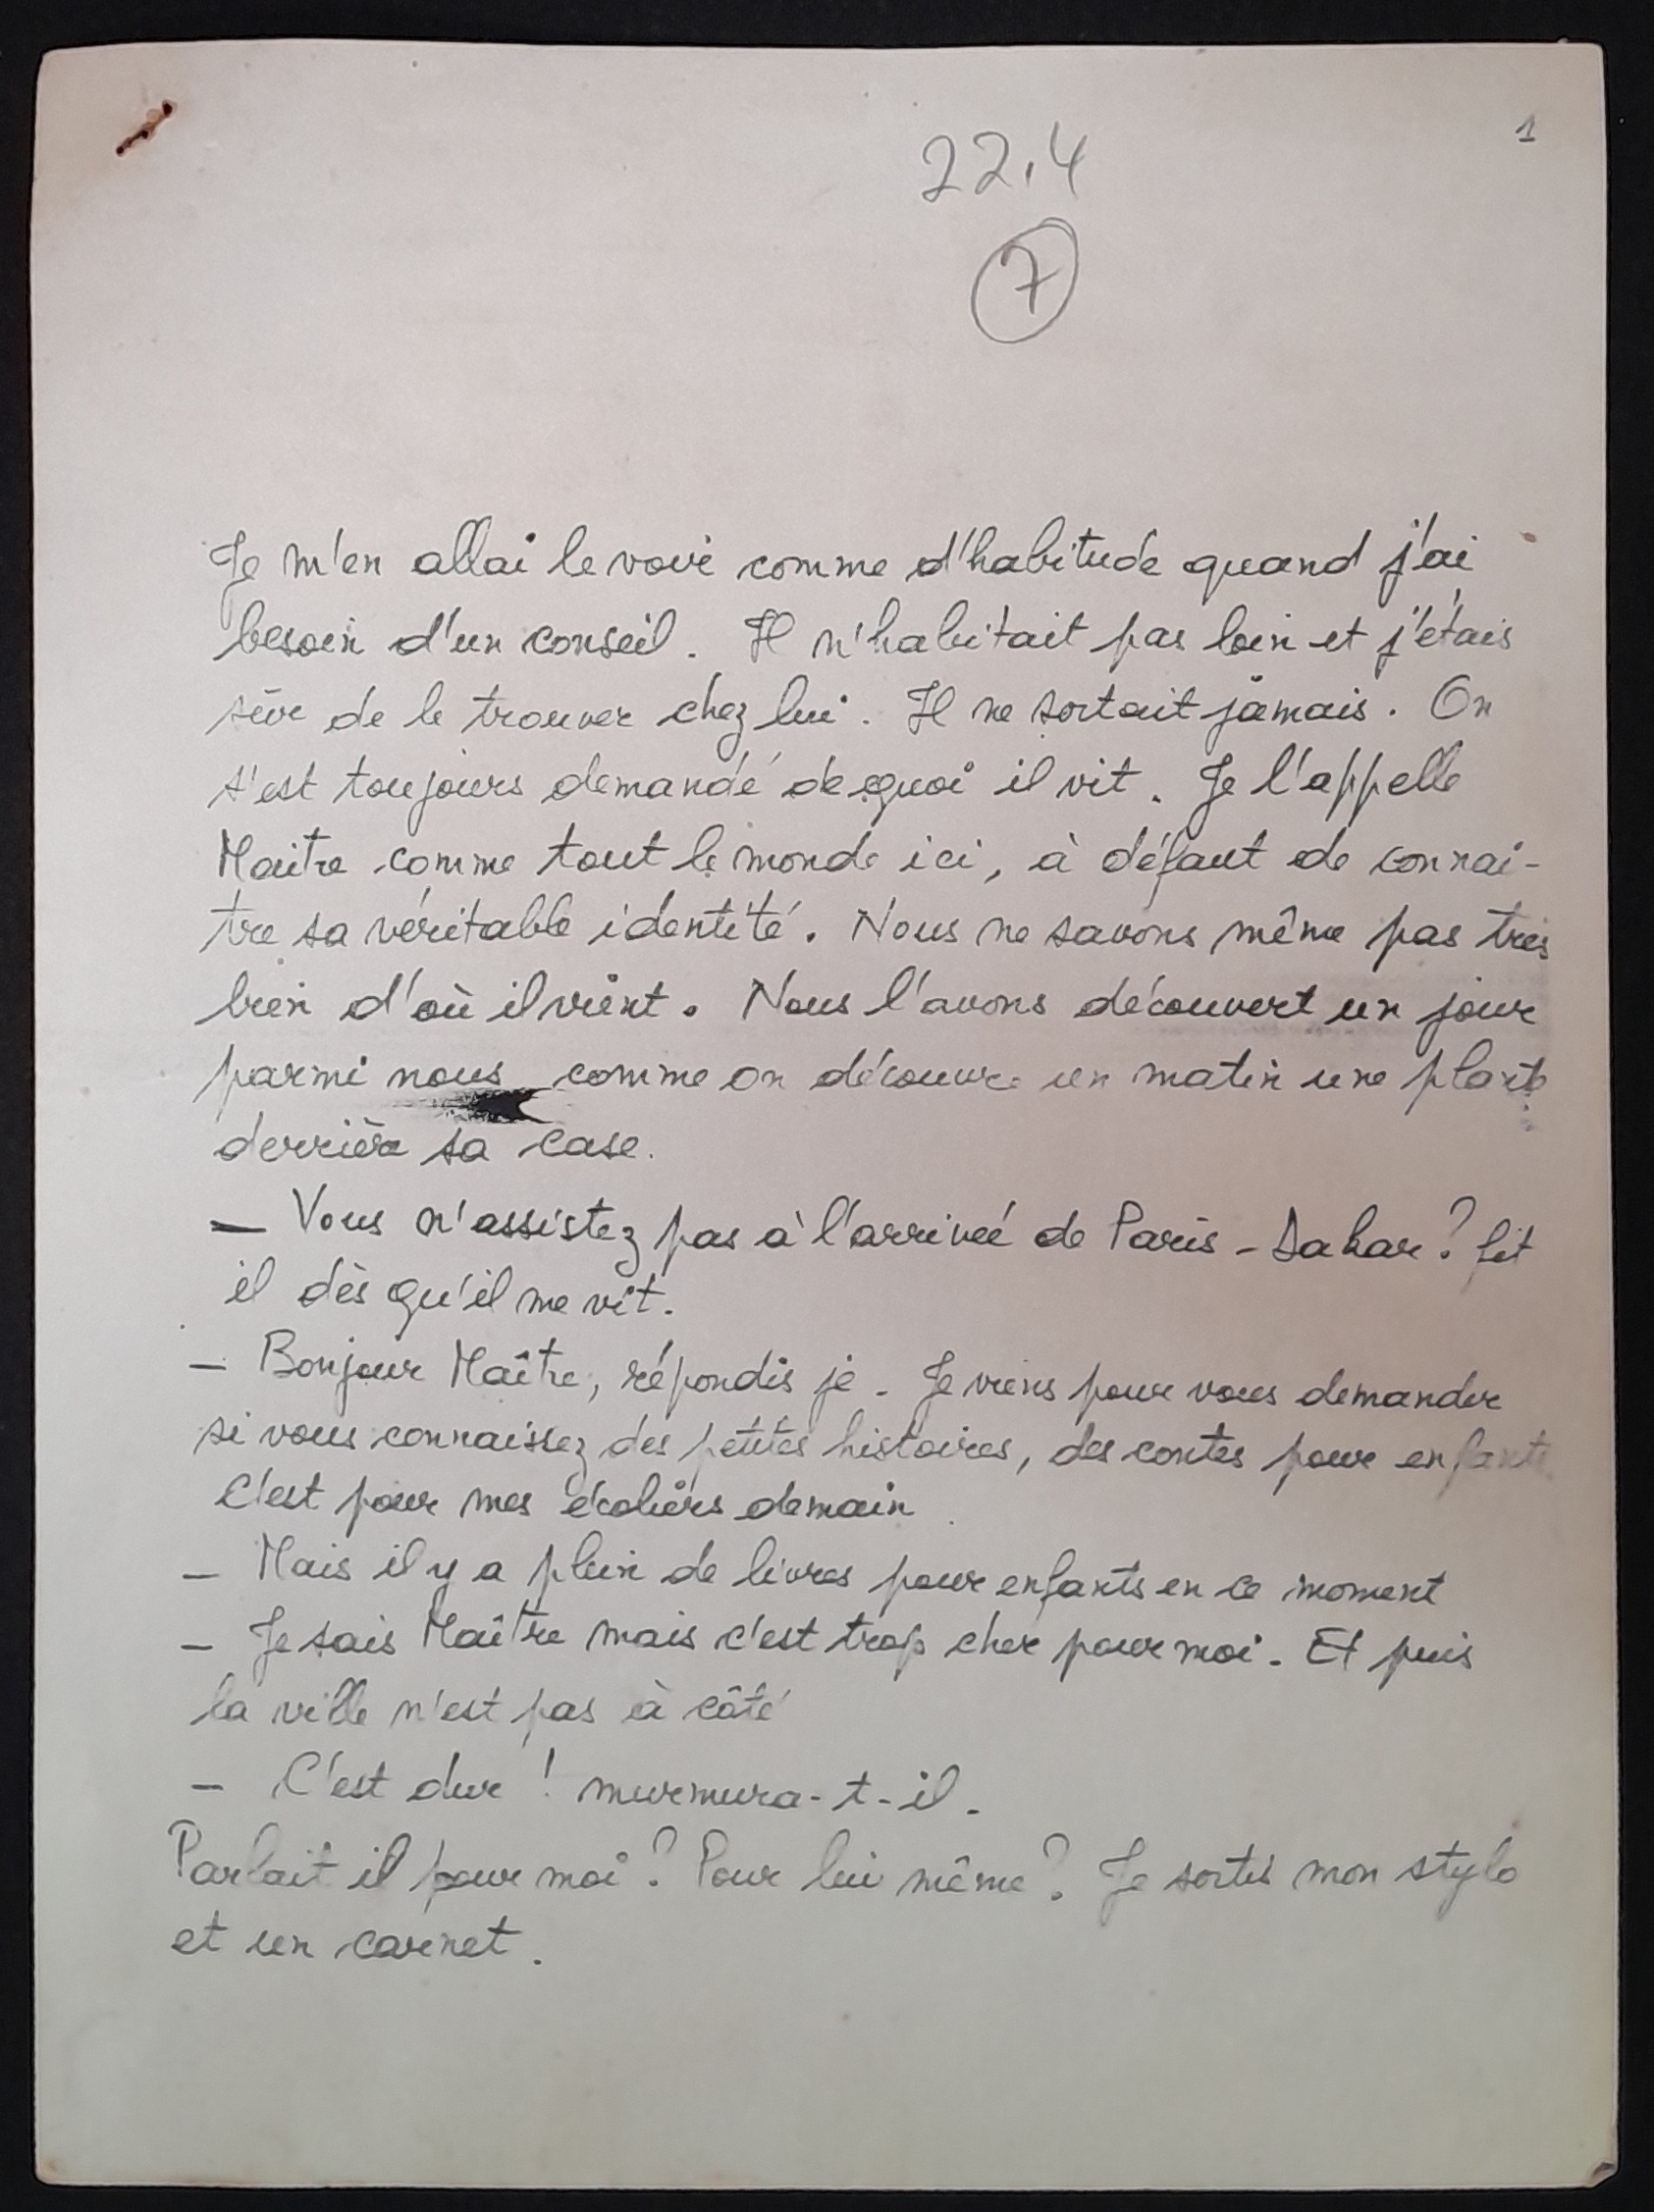 1
22.4
7
Je m'en allai le voir comme d'habitude quand j'ai
besoin d'un conseil. Il n'habitait pas loin et j'étais
sûr de le trouver chez lui. Il ne sortait jamais. On
s'est toujours demandé de quoi il vit. Je l'appelle
Maitre comme tout le monde ici, à défaut de connai-
tre sa véritable identité. Nous ne savons même pas très
bien d'où il vient. Nous l'avons découvert un jour
parmi nous comme on découvre un matin une plante
derrière sa case.
— Vous n'assistez pas à l'arrivée de Paris-Dakar? fit
il dès qu'il me vit.
— Bonjour Maître, répondis je. Je viens pour vous demander
si vous connaissez des petites histoires, des contes pour enfants
C'est pour mes écoliers demain
— Mais il y a plein de livres pour enfants en ce moment
— Je sais Maître mais c'est trop cher pour moi. Et puis
la ville n'est pas à côté
— C'est dur ! murmura-t-il.
Parlait il pour moi? Pour lui même? Je sortis mon stylo
et un carnet.